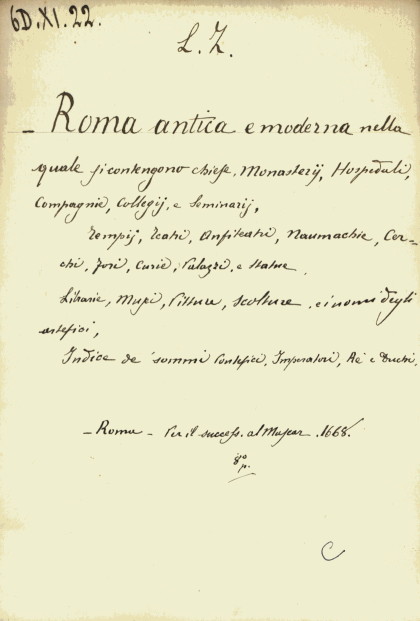 6D.XI.22.
L.Z.
– Roma antica e moderna nella
quale si contengono chiese, Monasterij, Hospedali,
Compagnie, Collegij, e Seminarij,
Tempij, Teatri, Anfiteatri, Naumachie, Cer=
chi, Fori, Curie, Palazzi, e Statue.
Librarie, Musei, Pitture, Scolture, e i nomi degli
artefici,
Indice de' sommi Pontefici, Imperatori, Rè e Duchi.
– Roma – Per il success. al Mascar. 1668.
8º
p.
C